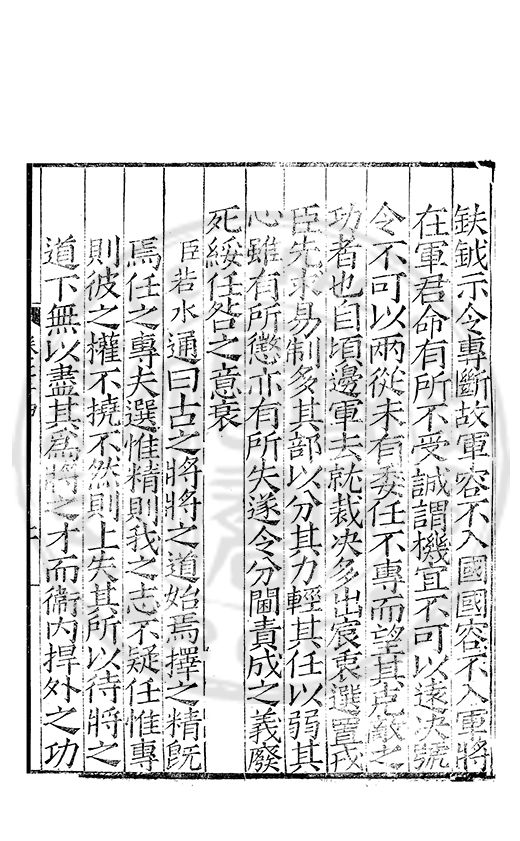 鈇鉞示令專斷故軍容不入國國容不入軍將
在軍君命有所不受誠謂機宜不可以遠決號
令不可以兩從未有委任不專而望其克敵之
功者也自頃邊軍去就裁決多出宸衷選置戎
臣先求易制多其部以分其力輕其任以弱其
心雖有所懲亦有所失遂令分閫責成之義廢
死綏任咎之意衰
臣若水通曰古之將將之道始焉擇之精既
焉任之專夫選惟精則我之志不疑任惟專
則彼之權不撓不然則上失其所以待將之
道下無以盡其爲將之才而衛內捍外之功